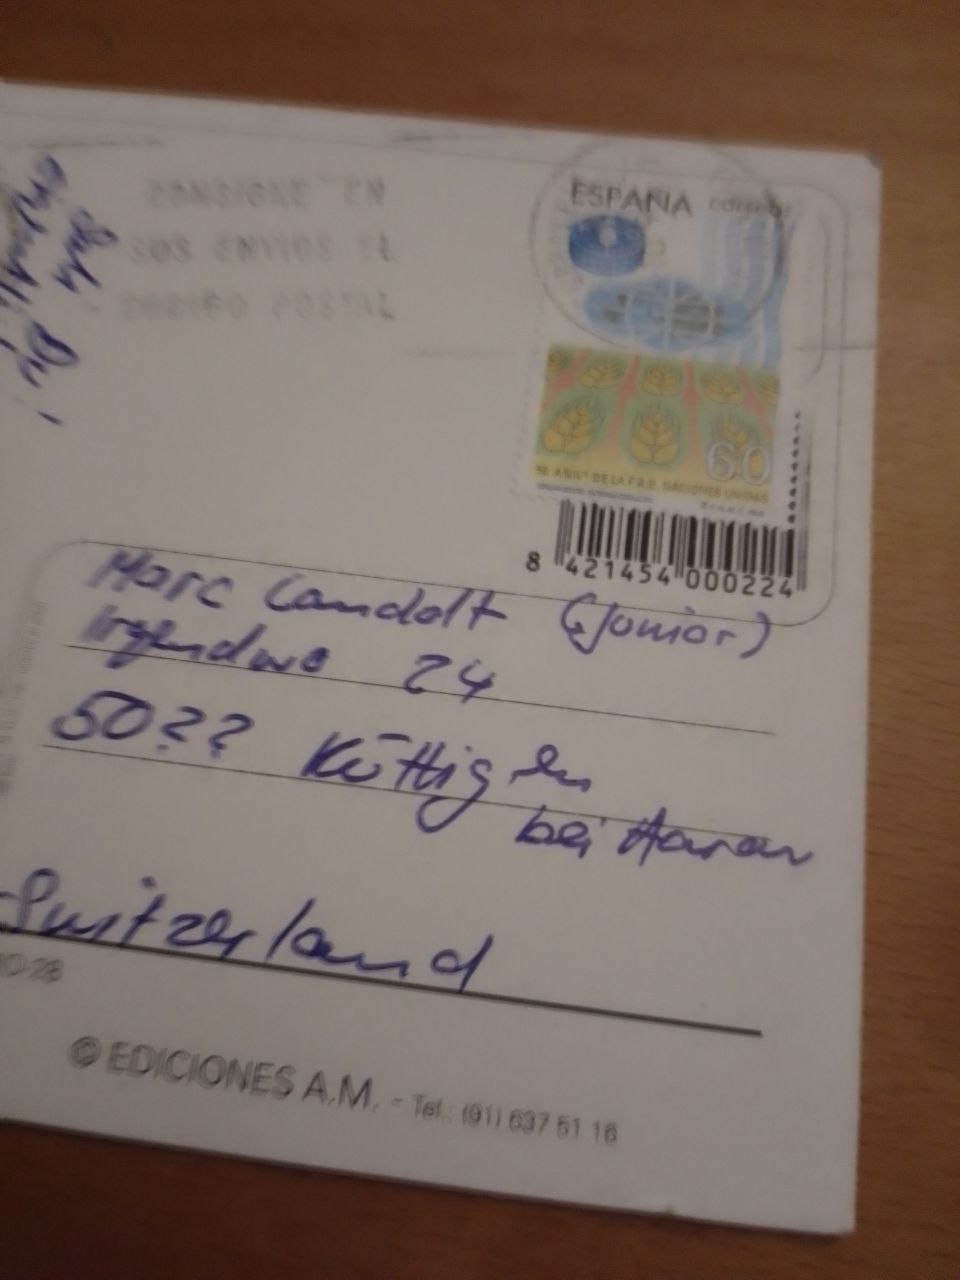 CONSIGNE EN
SUS ENVIOS EL
CODIGO POSTAL
ESPAÑA correos
60
50 ANIVº DE LA F.A.O. NACIONES UNIDAS
8 421454 000224
Marc Landolt (Junior)
Irgendwo 24
50?? Küttigen
bei Aarau
Switzerland
© EDICIONES A.M. - Tel.: (91) 637 51 16